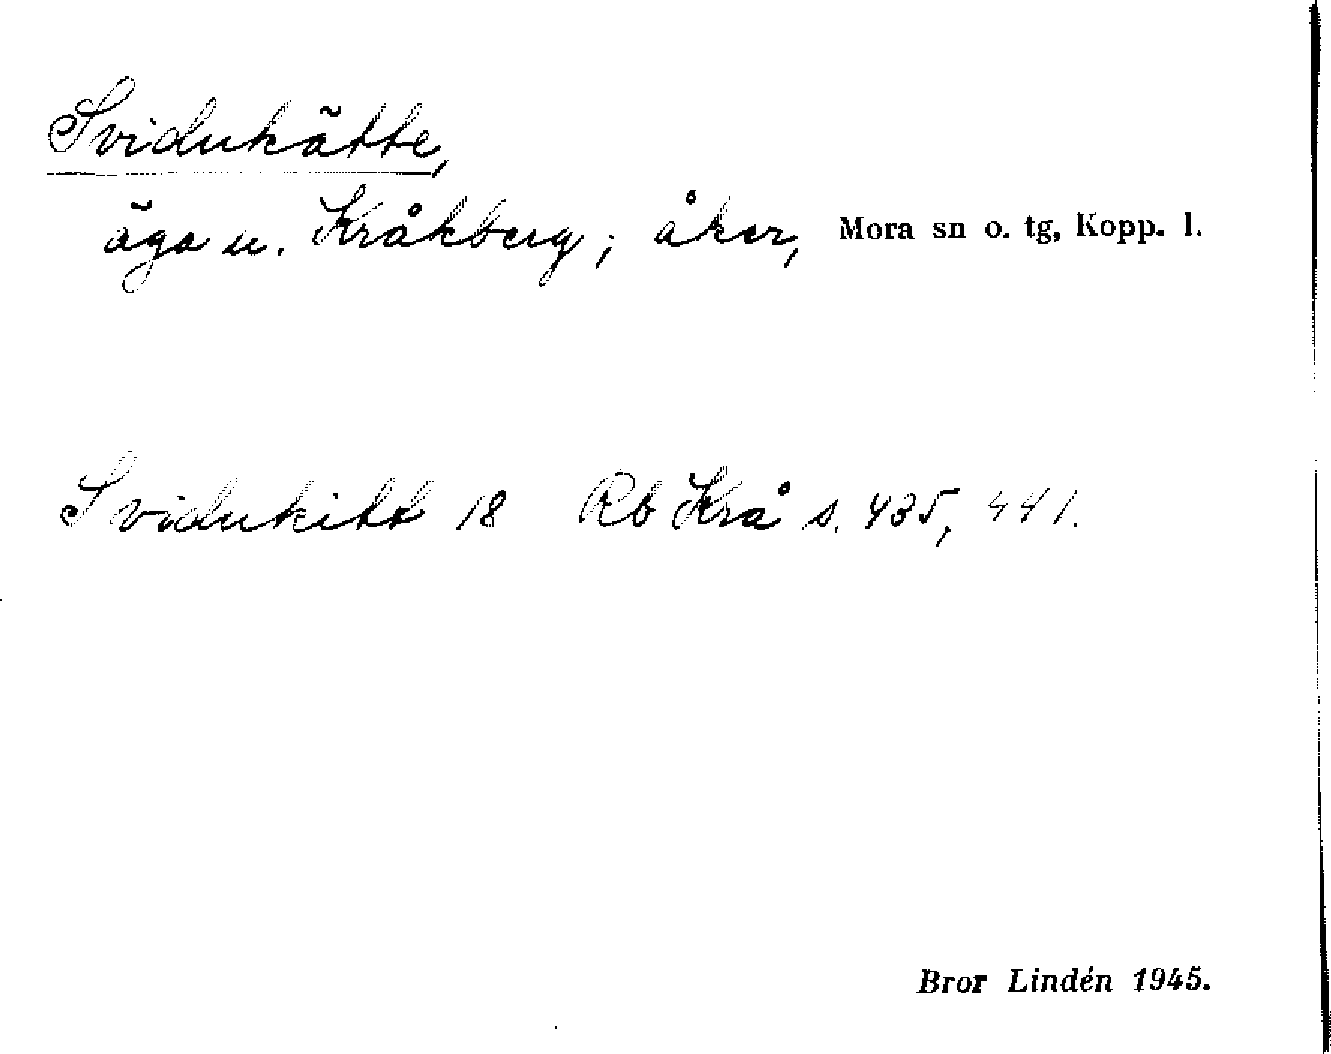 Svidukätte,
äga u. Kråkberg; åker, Mora sn o. tg, Kopp. l.
Svidukitt 18 Rb Krå s. 435, 441.
Bror Lindén 1945.